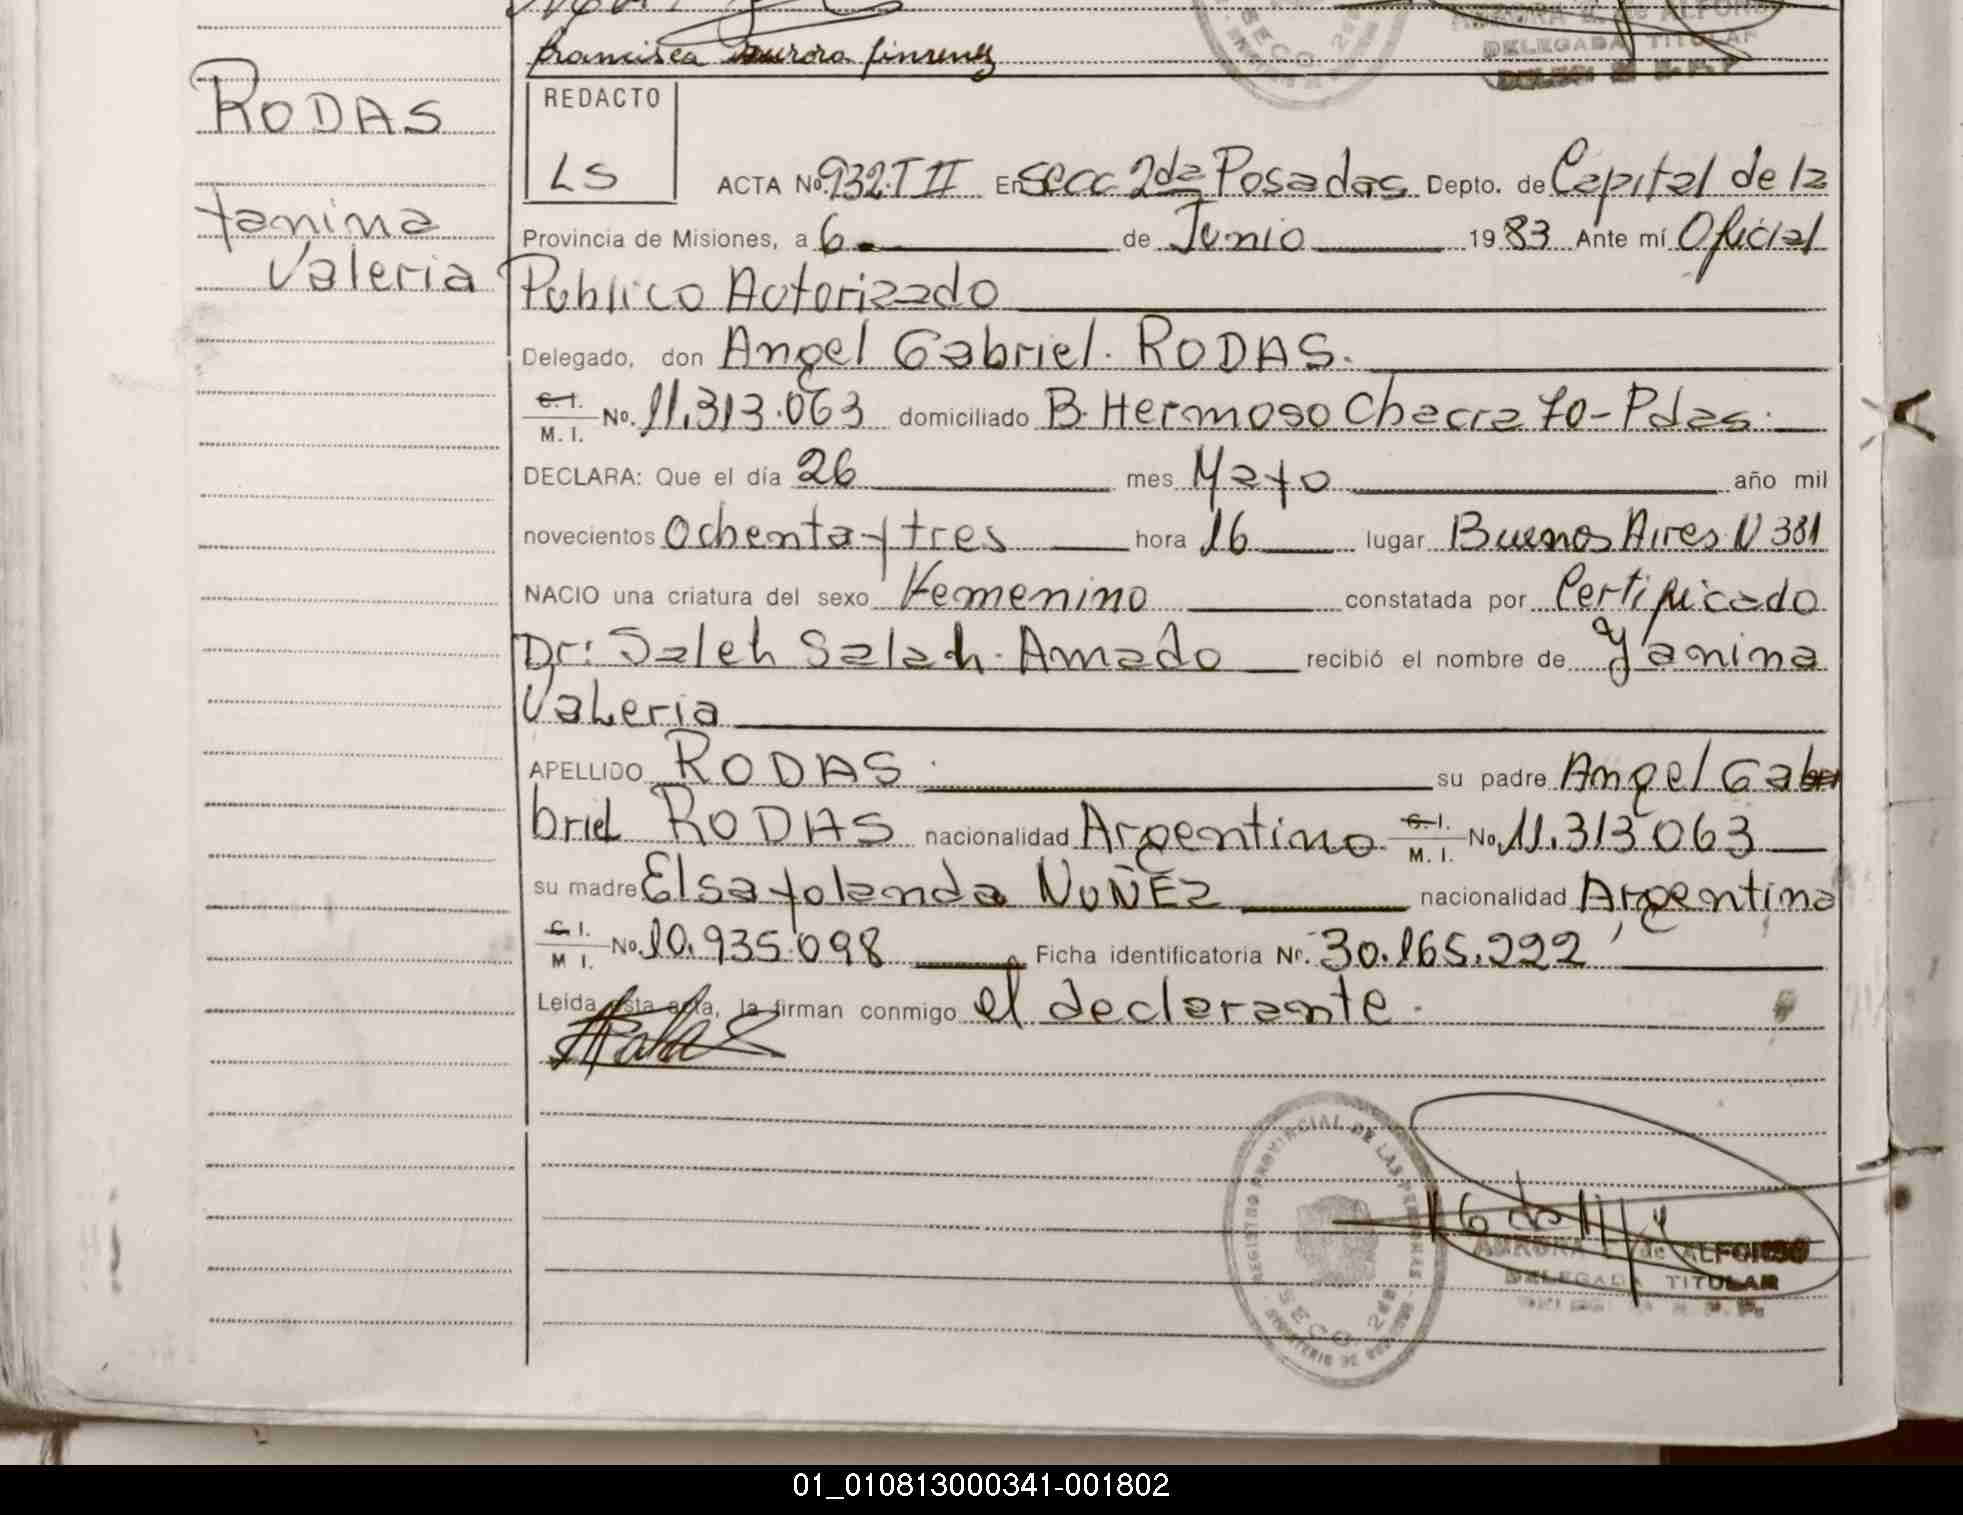 francisca aurora jimenez
DELEGADA TITULAR
RODAS
Yanina
Valeria
REDACTO
LS
ACTA No. 932.T II En secc 2da Posadas Depto. de Capital de la
Provincia de Misiones, a 6 de Junio 1983 Ante mí Oficial
Publico Autorizado
Delegado, don Angel Gabriel. RODAS.
C. I. / M. I. No. 11.313.063 domiciliado B. Hermoso Chacra 70-Pdas.
DECLARA: Que el día 26 mes Mayo año mil
novecientos Ochenta y tres hora 16 lugar Buenos Aires N 381
NACIO una criatura del sexo Femenino constatada por Certificado
Dr: Saleh Salah. Amado recibió el nombre de Yanina
Valeria
APELLIDO RODAS su padre Angel Ga
briel RODAS nacionalidad Argentino C. I. / M. I. No. 11.313 063
su madre Elsa Yolanda NUÑEZ nacionalidad Argentina
C. I. / M. I. No. 10.935.098 Ficha identificatoria Nr. 30.165.222
Leída esta acta, la firman conmigo el declarante.
REGISTRO PROVINCIAL DE LAS PERSONAS
SECC. 2da
AURORA de ALFONSO
DELEGADA TITULAR
01_010813000341-001802